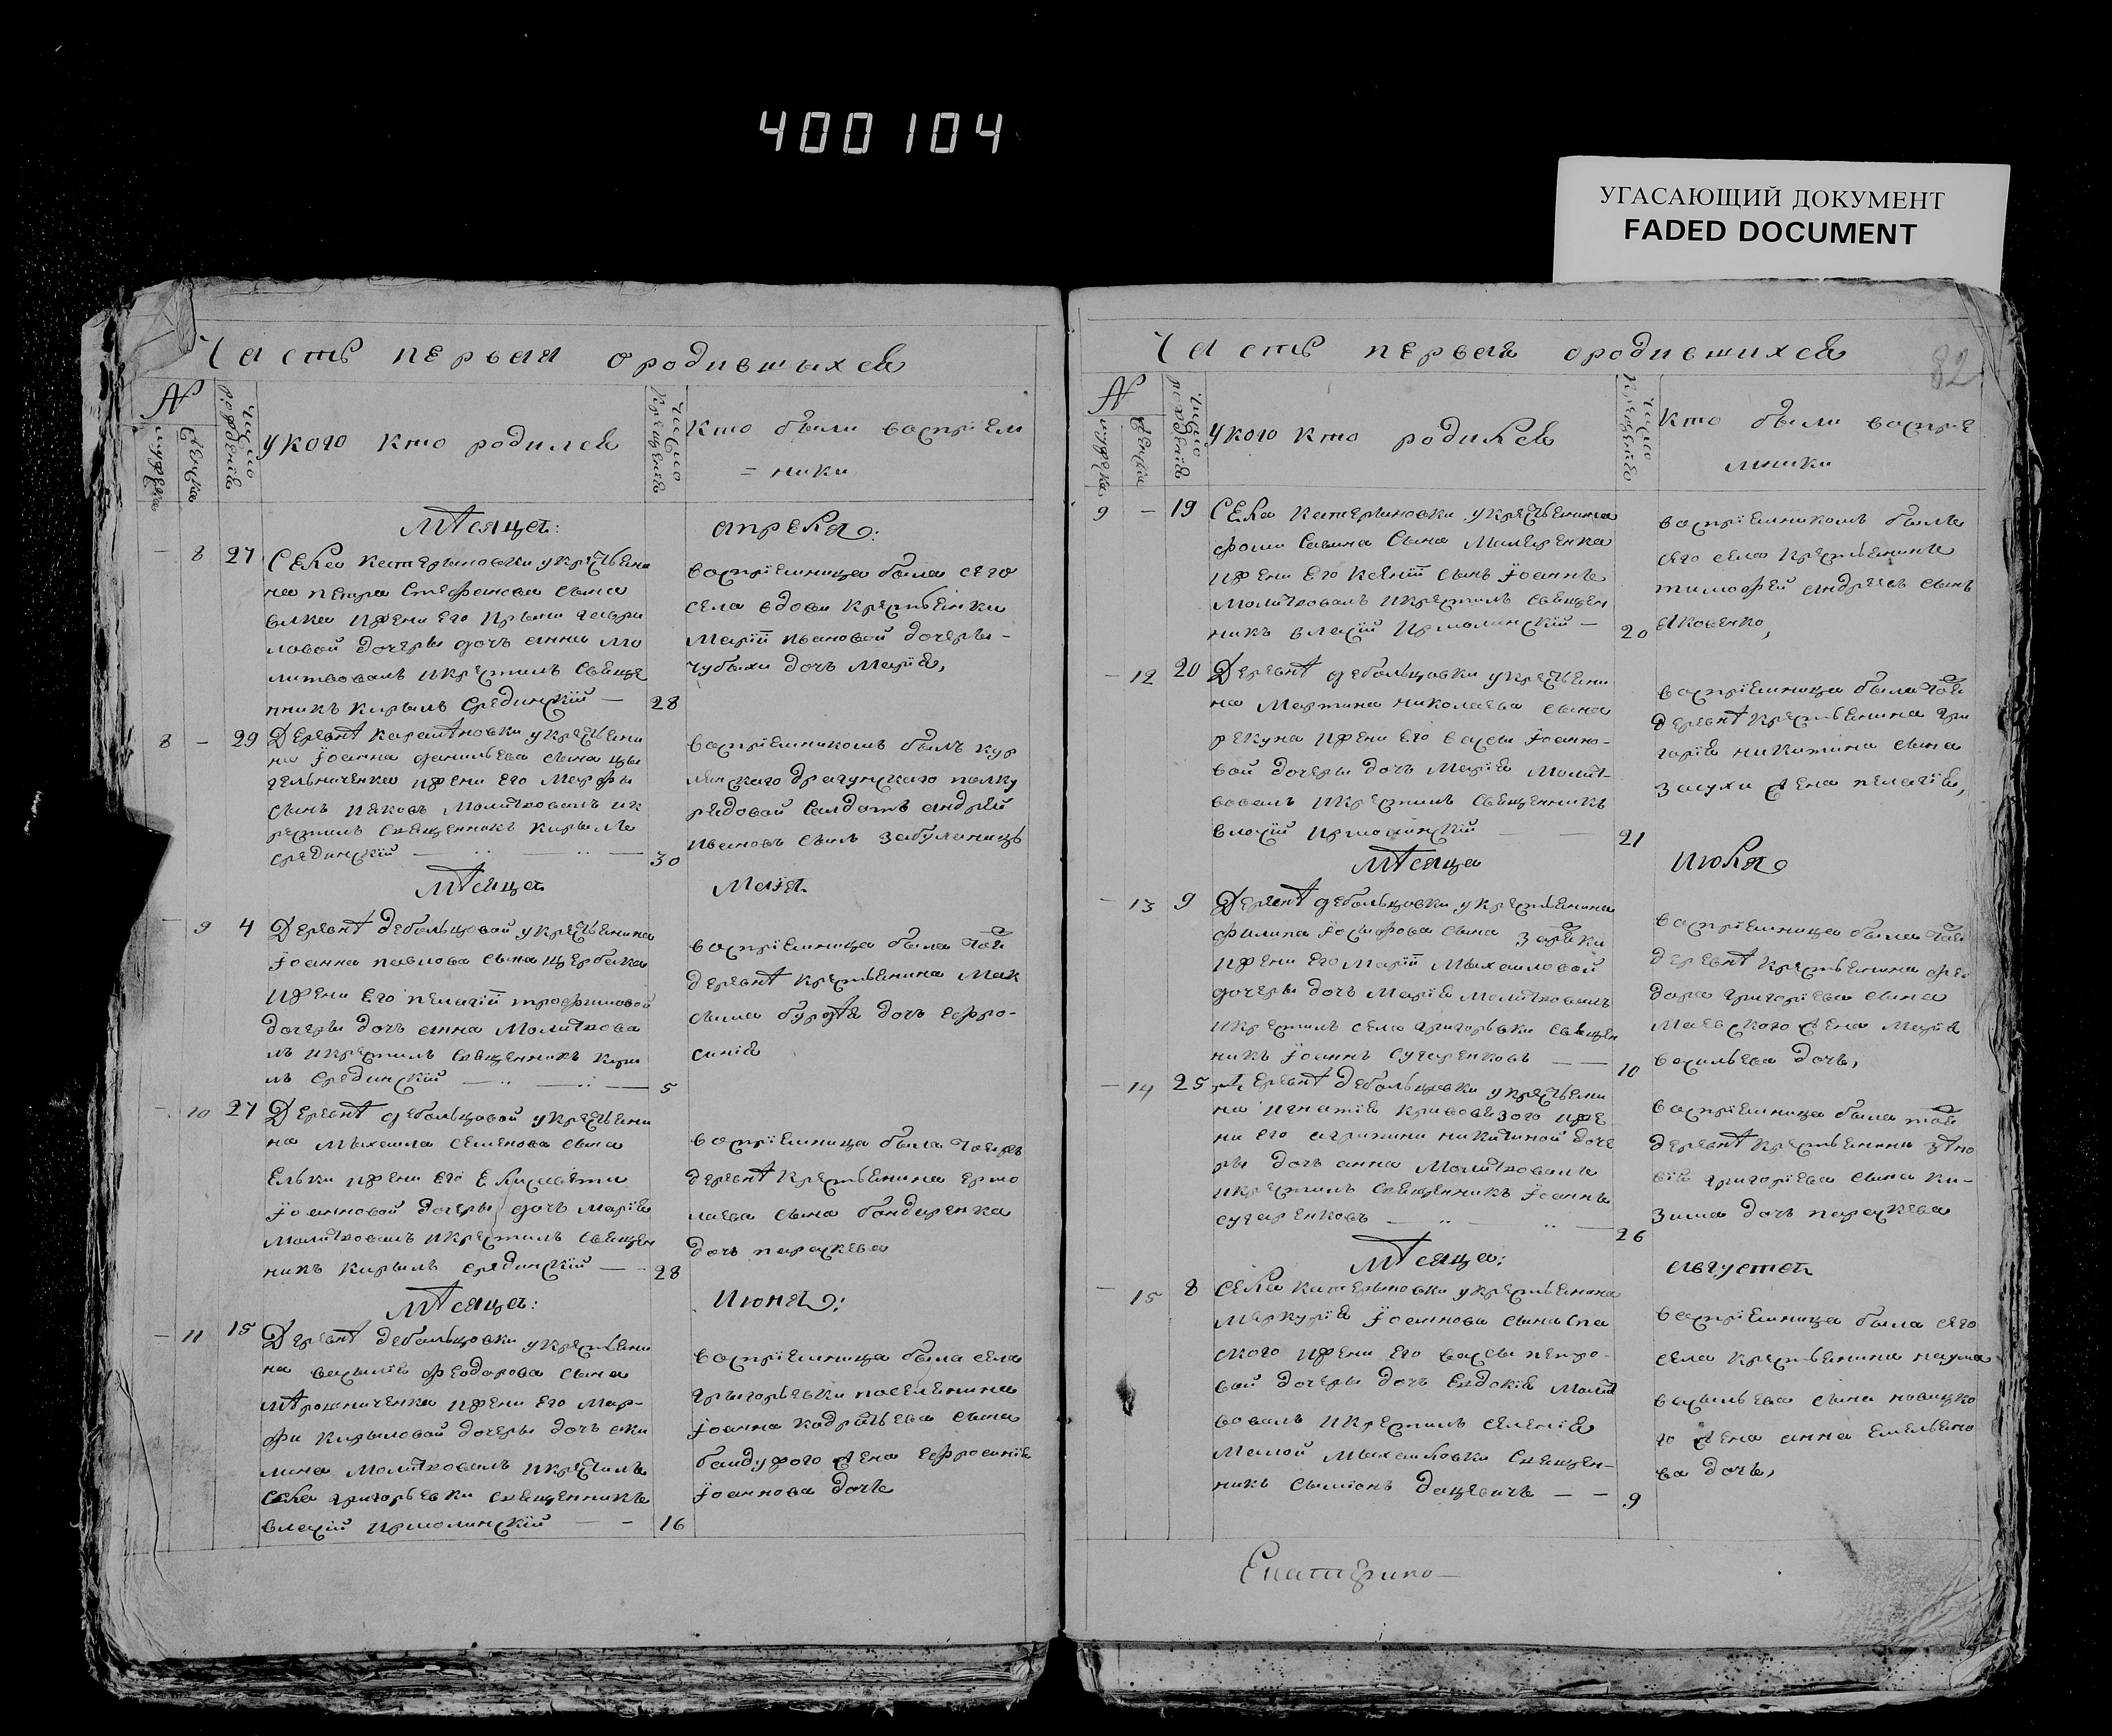 400104
УГАСАЮЩИЙ ДОКУМЕНТ
FADED DOCUMENT
Часть первая ородившыхся
№
мужеска
женска
Число рождения
укого кто родился
Число Крещения
Кто были восприем
= ники
Мѣсяца:
апреля:
8 27
Села Катериновки укрестьяни
на петра Стефанова сына
ижени Его Ирыни гаври
ловой дочеры дочь анна мо
литвовалъ икрестилъ свяще
нникъ Кирылъ Срединскій — 28
восприемница была сего
села вдова крестьянка
Маріи ивановой дочеры-
чубыхи дочь Марія,
8 - 29
Деревнѣ Карапновки укрестьяни
на Іоанна данильева сына
ижени Его Марфы
сынъ Иаковъ Молитвовалъ ик
рестилъ священникъ Кирылъ
Срединскій — 30
восприемникомъ былъ кур
ляндского драгунского полку
рядовой Салдатъ андрей
ивановъ сынъ
Мѣсяца
Маія
9 4
Деревнѣ дебальцовой укрестьянина
Іоанна павлова сына щербака
ижени Его пелагіи трофимовой
дочеры дочь анна Молитвова
лъ икрестилъ священникъ кири
лъ Срединскій — 5
восприемница была тоей
деревнѣ крестьянина Мак
сыма дочь ефро-
синія
10 27
Деревнѣ дебальцовой укрестьяни
на Мыхаила семенова сына
Ельки ижени Его Елисавети
Іоанновой дочеры дочь Марія
Молитвовалъ икрестилъ священ
никъ Кирылъ Срединскій — 28
восприемница была тоей
деревнѣ крестьянина ермо
лаева сына бондаренка
дочь параскева
Мѣсяца:
Июня:
11 15
Деревнѣ дебальцовки укрестьяни
на василія феодорова сына
Мѣрошниченка ижени Его Мар-
фи Кирыловой дочеры дочь аки
лина Молитвовалъ икрестилъ
села григорьевки священникъ
влясій Ирмолинскій — 16
восприемница была села
грыгорьевки поселянина
Іоанна кодратьева сына
бандурого жена Ефросинія
Іоаннова дочь
Часть первая ородившихся
82
№
мужеска
женска
Число рождения
укого кто родился
Число Крещения
Кто были воспрie
мники
9 - 19
Села Катериновки укрестьянина
фоми Савина сына
ижени Его Ксеніи сынъ Іоаннъ
Молитвовалъ икрестилъ священ
никъ влясій Ирмолинскій — 20
восприемникомъ былъ
сего села крестьянинъ
тимофей андреевъ сынъ
Яковенко,
12 20
Деревнѣ дебальцовки укрестьяни
на Мартина николаева сына
рекуна ижени Его васси Іоанно-
вой дочеры дочь Марія Молит-
вовалъ икрестилъ священникъ
влясій Ирмолинскій — 21
восприемница была тоей
деревнѣ крестьянина гри
горія никитина сына
жена пелагія,
Мѣсяца
Июля
13 9
Деревнѣ дебальцовки укрестьянина
филипа Іосифова сына
ижени Его Маріи Мыхаиловой
дочеры дочь Марія Молитвовалъ
икрестилъ села григорьевки священ
никъ Іоаннъ Сухаренковъ — 10
восприемница была тоей
деревнѣ крестьянина фео
дора григоріева сына
Маевского жена Марія
васильева дочь,
14 25
Деревнѣ дебальцовки укрестьяни
на игнатія кривовязого иже
ни его агрипини никитиной доче
ры дочь анна Молитвовалъ
икрестилъ священникъ Іоаннъ
Сухаренковъ — 26
восприемница была тоей
деревнѣ крестьянина зѣно
вія григоріева сына Ки-
зима дочь параскева
Мѣсяца:
августа
15 8
Села Катериновки укрестьянина
Меркурія Іоаннова сына Спа
ского ижени Его васси петро-
вой дочеры дочь Евдокія Молит
вовалъ икрестилъ селенія
Малой Мыхаиловки священ-
никъ Сымеонъ Дацевичъ — 9
восприемница была сего
села крестьянина наума
васильева сына новицко
го жена анна Емельяно
ва дочь,
Екатерино—